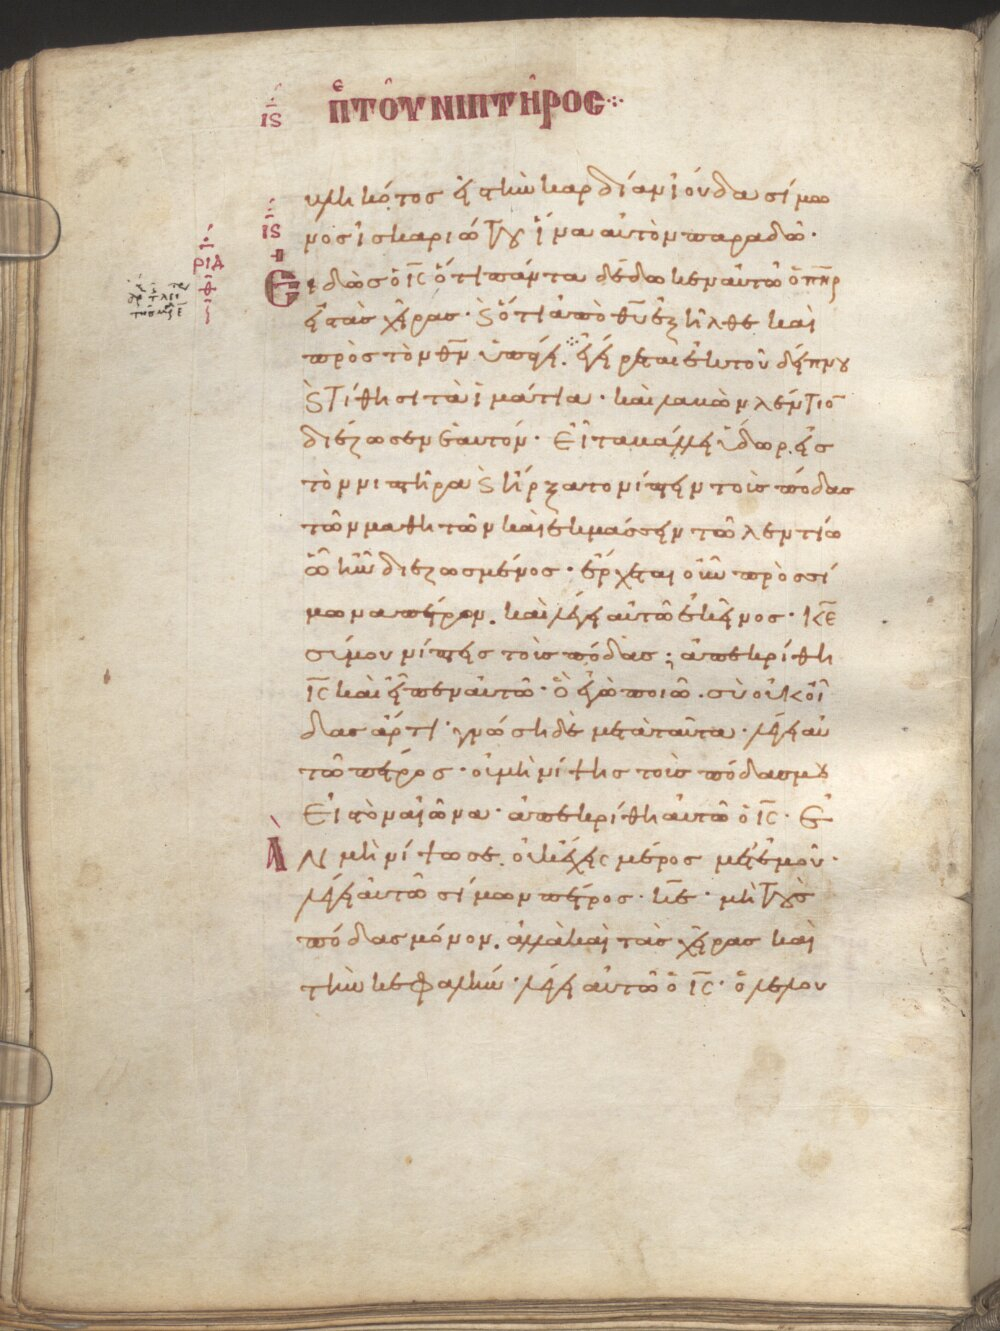 ις πε τοῦ νιπτῆρος
βληκότος εἰς τὴν καρδίαν ἰούδα σίμω
ις νος ἰσκαριώτου ἵνα αὐτὸν παραδῶ·
ριδ Ειδὼς ὁ ις ὅτι πάντα δέδωκεν αὐτῶ ὁ πηρ
εἰς τὰς χεῖρας· ϗ ὅτι ἀπὸ θυ ἐξῆλθε καὶ
πρὸς τὸν θν ὑπάγει. ἐγείρεται ἐκ τοῦ δείπνου
ϗ τίθησι τὰ ἱμάτια· καὶ λαβὼν λέντιον
διέζωσεν ἑαυτόν· εἶτα βάλλει ὕδωρ εἰς
τὸν νιπτῆρα ϗ ἤρξατο νίπτειν τοὺς πόδας
τῶν μαθητῶν καὶ ἐκμάσσειν τῶ λεντίω
ὧ ἦν διεζωσμένος· ἔρχεται οὖν πρὸς σί
μωνα πέτρον. καὶ λέγει αὐτῶ ἐκεῖνος· κε
σύ μου νίπτεις τοὺς πόδας; ἀπεκρίθη
ις καὶ εἶπεν αὐτῶ· ὃ ἐγὼ ποιῶ· σὺ οὐκ οἶ
δας ἄρτι· γνώση δὲ μετὰ ταῦτα· λέγει αὐ
τῶ πέτρος· οὐ μὴ νίψης τοὺς πόδας μου
εἰς τὸν αἰῶνα· ἀπεκρίθη αὐτῶ ὁ ις· ἐ
ὰν μὴ νίψω σε. οὐκ ἔχεις μέρος μετ' ἐμοῦ·
λέγει αὐτῶ σίμων πέτρος· κε· μὴ τοὺς
πόδας μόνον. ἀλλὰ καὶ τὰς χεῖρας καὶ
τὴν κεφαλήν· λέγει αὐτῶ ὁ ις· ὁ λελου